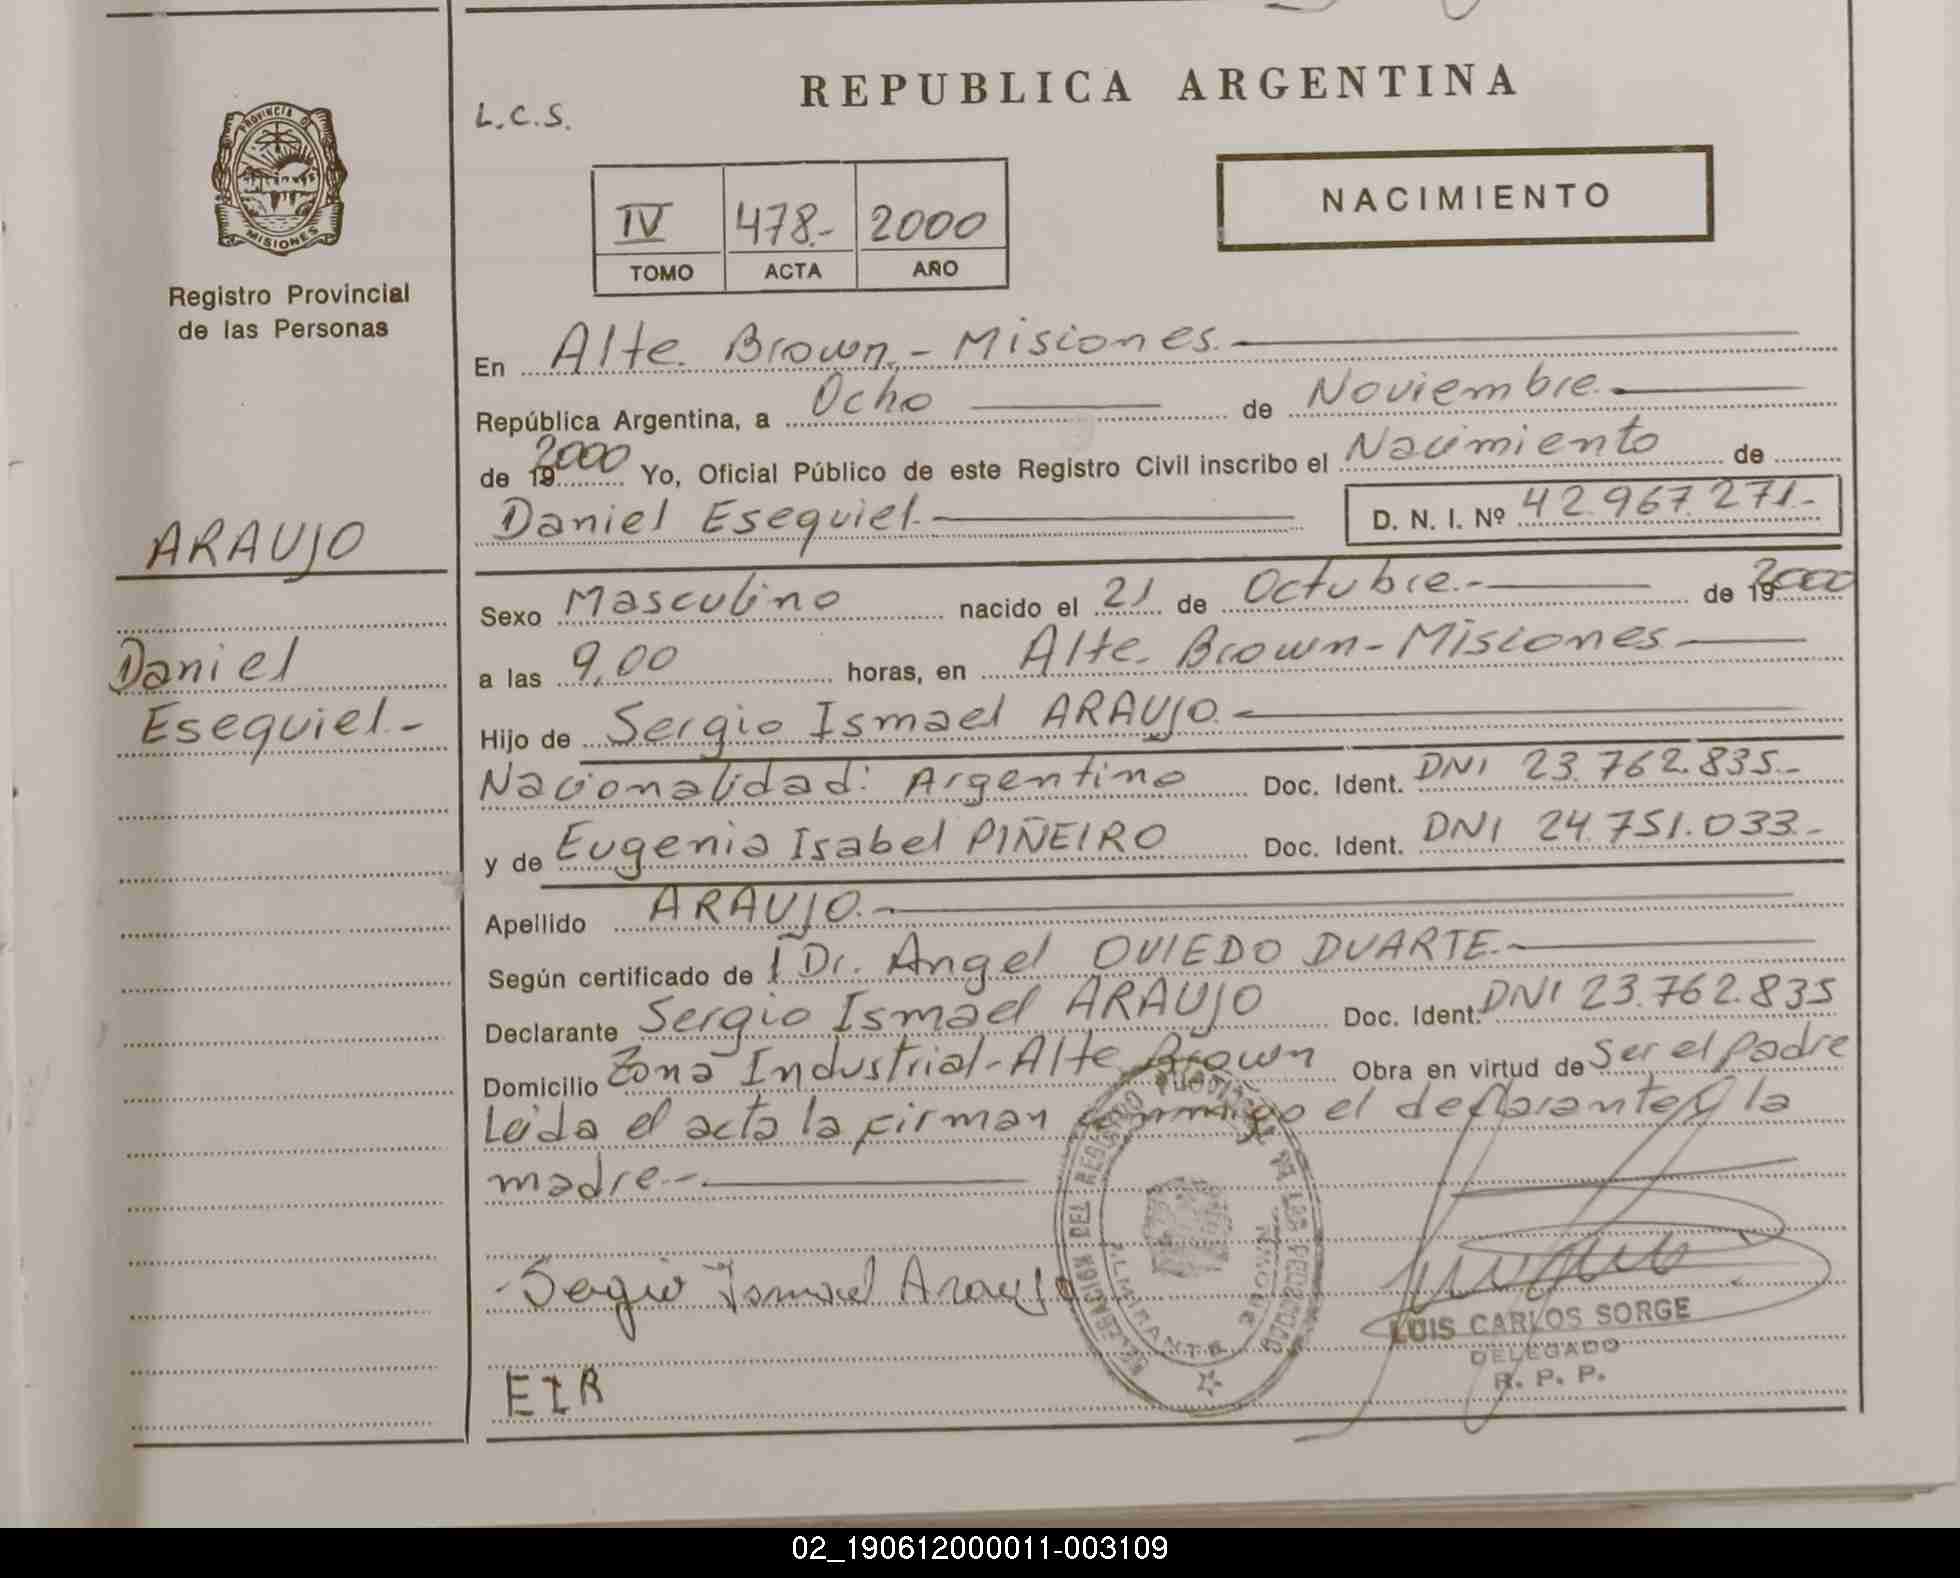 REPUBLICA ARGENTINA
L.C.S.
PROVINCIA D
MISIONES
Registro Provincial
de las Personas
NACIMIENTO
IV 478.- 2000
TOMO ACTA AÑO
En Alte. Brown.- Misiones.
República Argentina, a Ocho de Noviembre.
de 19 2000 Yo, Oficial Público de este Registro Civil inscribo el Nacimiento de
Daniel Esequiel.- D. N. I. Nº 42.967.271.-
ARAUJO
Daniel
Esequiel.-
Sexo Masculino nacido el 21 de Octubre.- de 19 2000
a las 9,00 horas, en Alte. Brown-Misiones.-
Hijo de Sergio Ismael ARAUJO.-
Nacionalidad: Argentino Doc. Ident. DNI 23.762.835.-
y de Eugenia Isabel PIÑEIRO Doc. Ident. DNI 24.751.033.-
Apellido ARAUJO.-
Según certificado de l Dr. Angel OVIEDO DUARTE.-
Declarante Sergio Ismael ARAUJO Doc. Ident. DNI 23.762.835
Domicilio Zona Industrial-Alte Brown Obra en virtud de Ser el padre
Leida el acta la firman conmigo el declarante y la
madre.-
Sergio Ismael Araujo
EIR
DELEGACION DEL REGISTRO PROVINCIAL DE LAS PERSONAS
ALMIRANTE BROWN
LUIS CARLOS SORGE
DELEGADO
R. P. P.
02_190612000011-003109